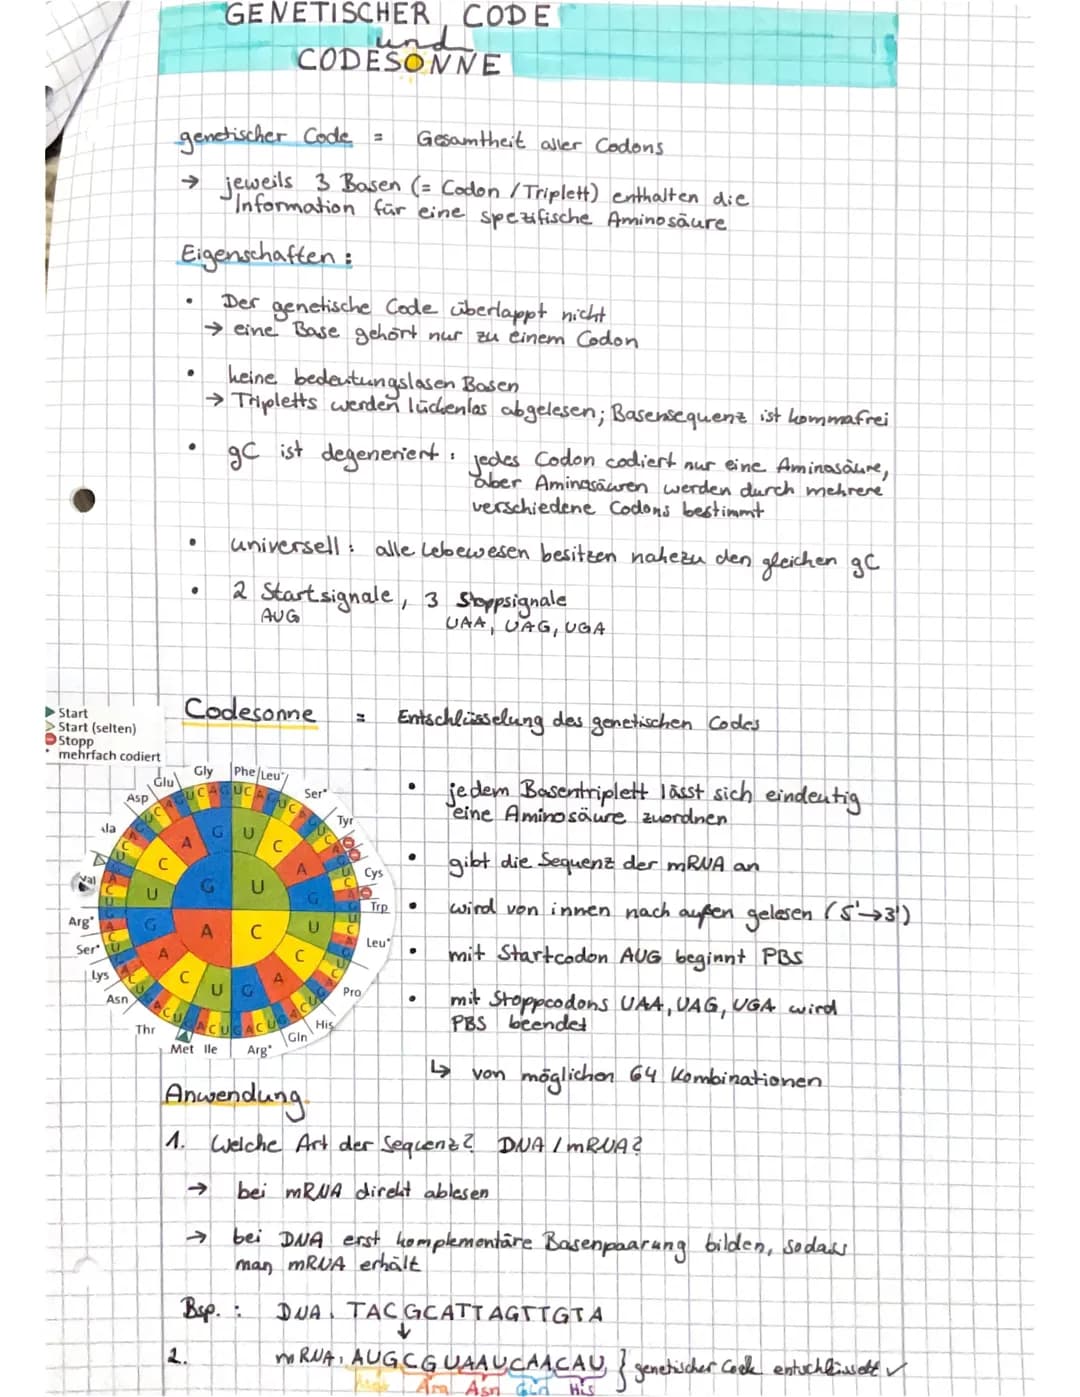 GENETISCHER CODE
und
CODESONNE
genetischer Code = Gesamtheit aller Codons
→ jeweils 3 Basen (= Codon / Triplett) enthalten die
Information für eine spezifische Aminosäure
Eigenschaften:
• Der genetische Code überlappt nicht
→ eine Base gehört nur zu einem Codon
• keine bedeutungslosen Basen
→ Tripletts werden lückenlos abgelesen; Basensequenz ist kommafrei
• gC ist degeneriert: jedes Codon codiert nur eine Aminosäure,
aber Aminosäuren werden durch mehrere
verschiedene Codons bestimmt
• universell: alle Lebewesen besitzen nahezu den gleichen gC
• 2 Startsignale, 3 Stoppsignale
AUG UAA, UAG, UGA
Start
Start (selten)
Stopp
* mehrfach codiert
Codesonne = Entschlüsselung des genetischen Codes
Gly Phe Leu*
Glu Ser*
Asp Tyr
Ala
Val Cys
Trp
Arg* Leu*
Ser*
Lys Pro
Asn His
Thr Gln
Met Ile Arg*
G U
A C
• jedem Basentriplett lässt sich eindeutig
eine Aminosäure zuordnen
• gibt die Sequenz der mRNA an
• wird von innen nach außen gelesen (5'→3')
• mit Startcodon AUG beginnt PBS
• mit Stoppcodons UAA, UAG, UGA wird
PBS beendet
↳ von möglichen 64 Kombinationen
Anwendung
1. Welche Art der Sequenz? DNA / mRNA?
→ bei mRNA direkt ablesen
→ bei DNA erst komplementäre Basenpaarung bilden, sodass
man mRNA erhält
Bsp.: DNA: TACGCATTAGTTGTA
↓
2. mRNA: AUGCGUAAUCAACAU } genetischer Code entschlüsselt ✓
Arg Asn Gln His